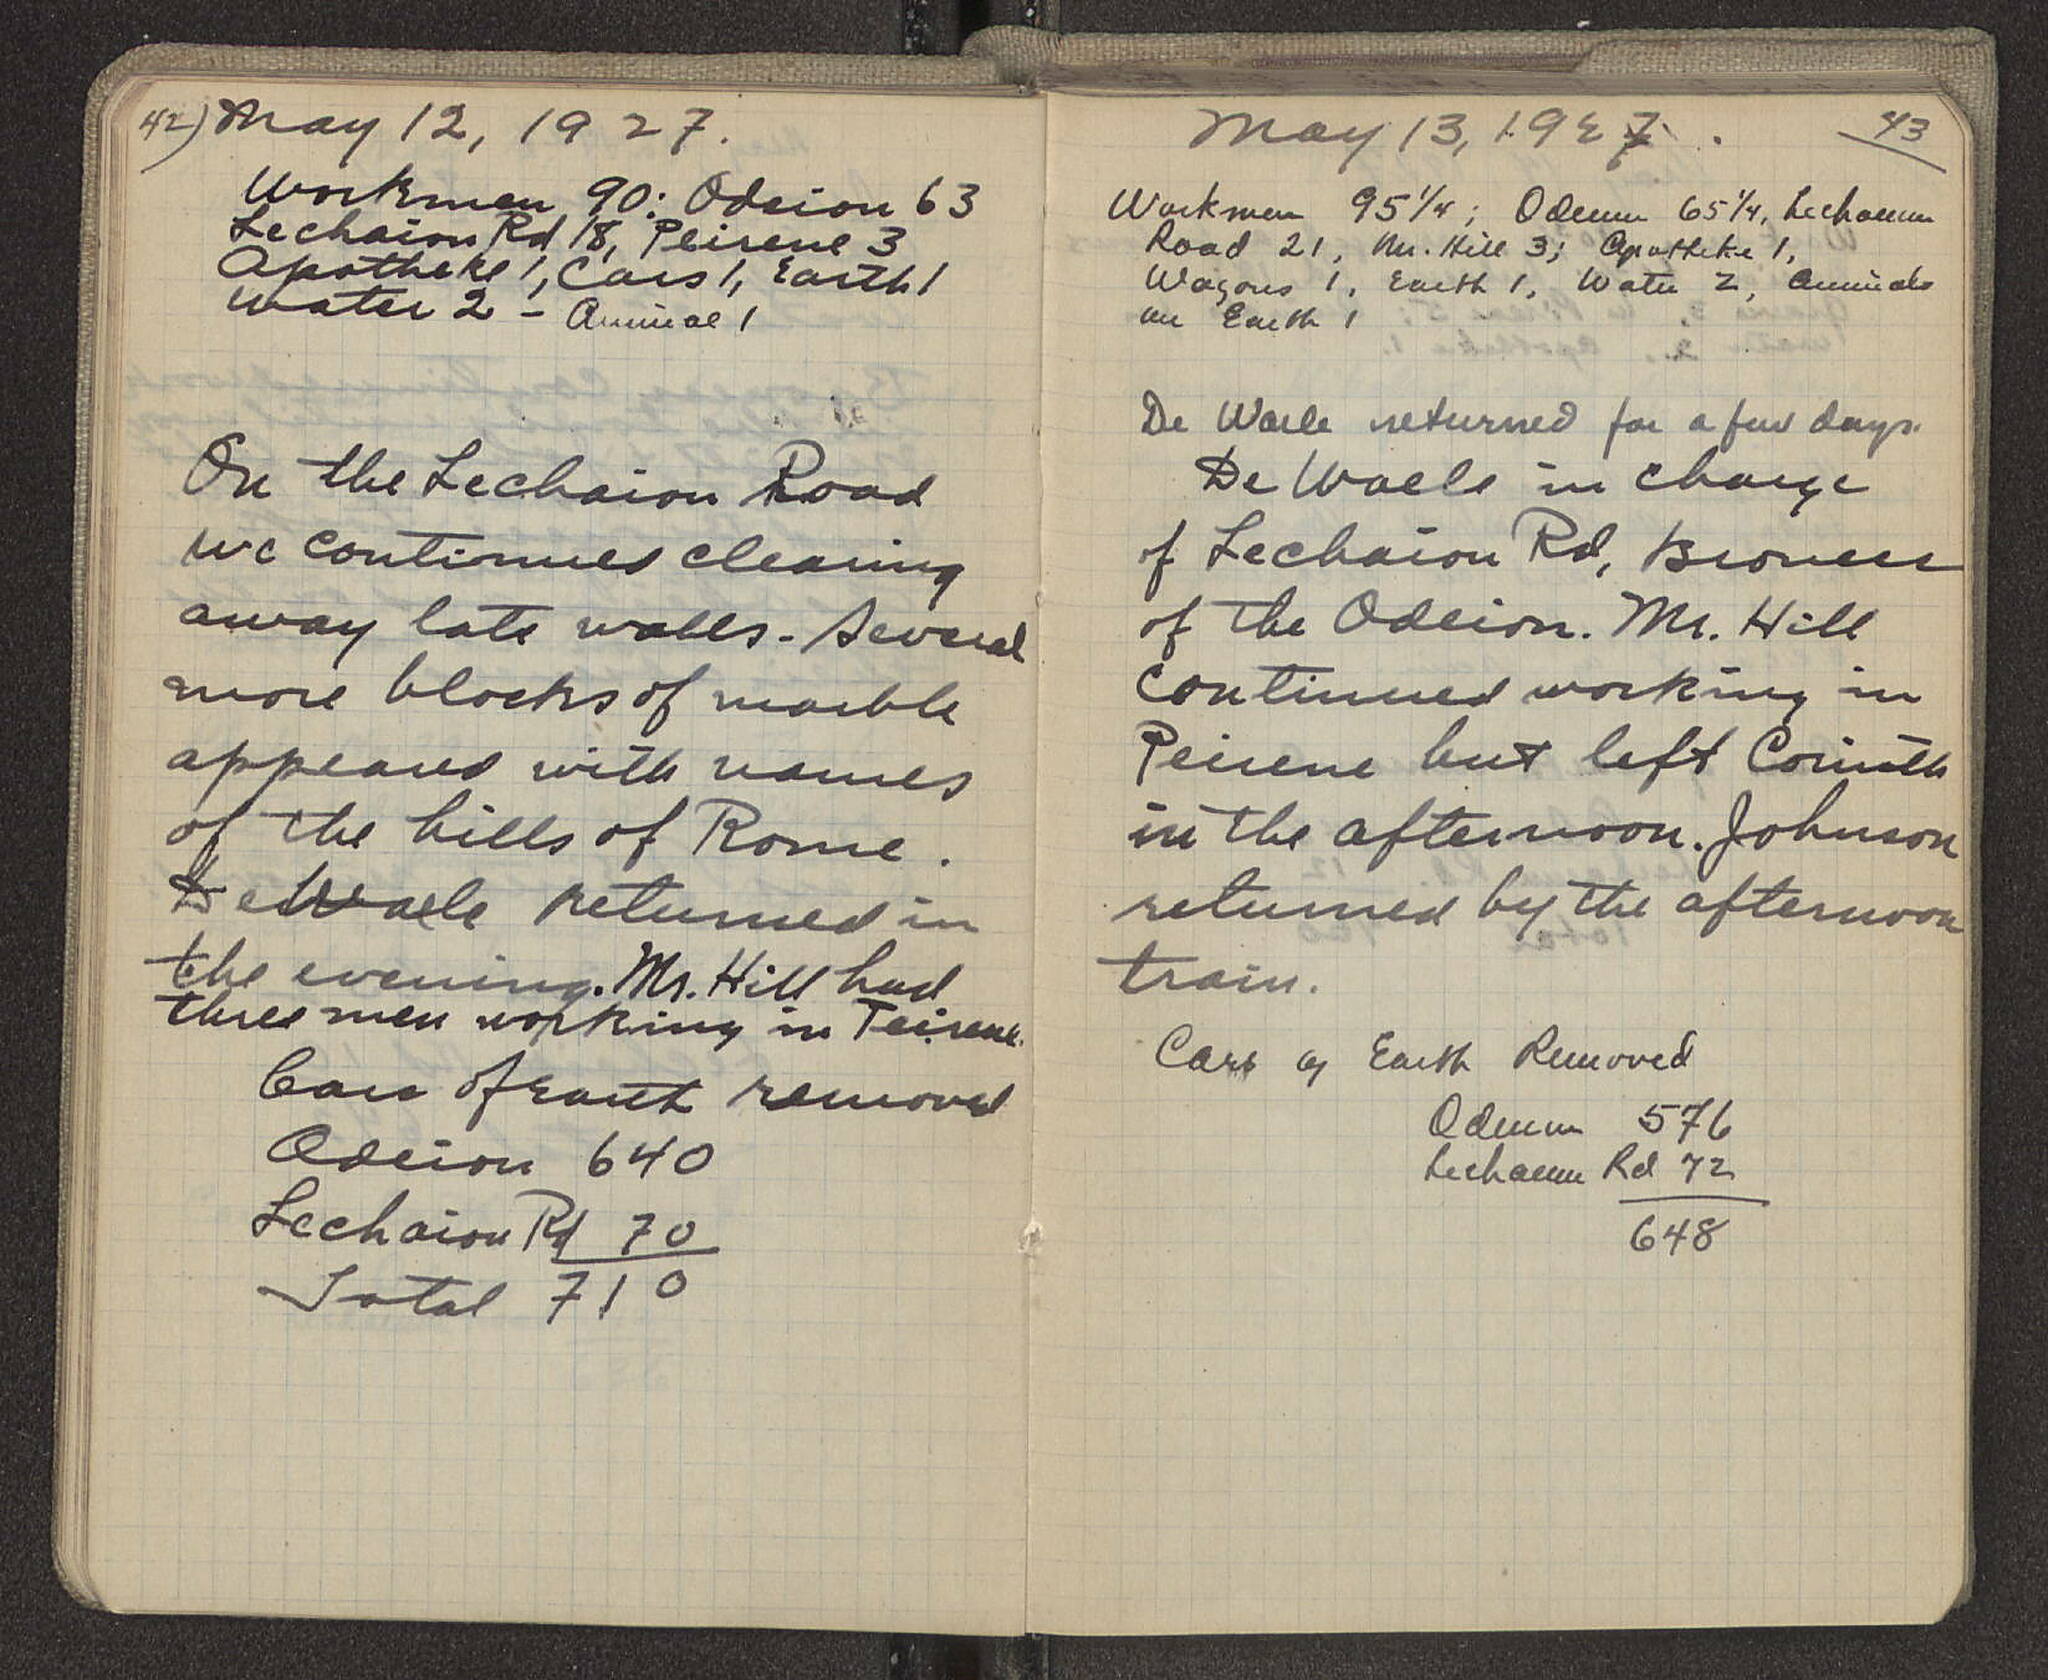 42) May 12, 1927.
Workmen 90: Odeion 63
Lechaion Rd 18, Peirene 3
Apotheke 1, Cars 1, Earth 1
Water 2 - Animal 1
On the Lechaion Road
we continued clearing
away late walls. Several
more blocks of marble
appeared with names
of the hills of Rome.
De Waele returned in
the evening. Mr. Hill had
three men working in Peirene.
Cars of earth removed
Odeion 640
Lechaion Rd 70
Total 710
May 13, 1927. 43
Workmen 95 1/4; Odeum 65 1/4, Lechaeum
Road 21, Mr. Hill 3; Apotheke 1,
Wagons 1, Earth 1, Water 2, Animals
on Earth 1
De Waele returned for a few days.
De Waele in charge
of Lechaion Rd, Broneer
of the Odeion. Mr. Hill
continued working in
Peirene but left Corinth
in the afternoon. Johnson
returned by the afternoon
train.
Cars of Earth Removed
Odeum 576
Lechaeum Rd 72
648